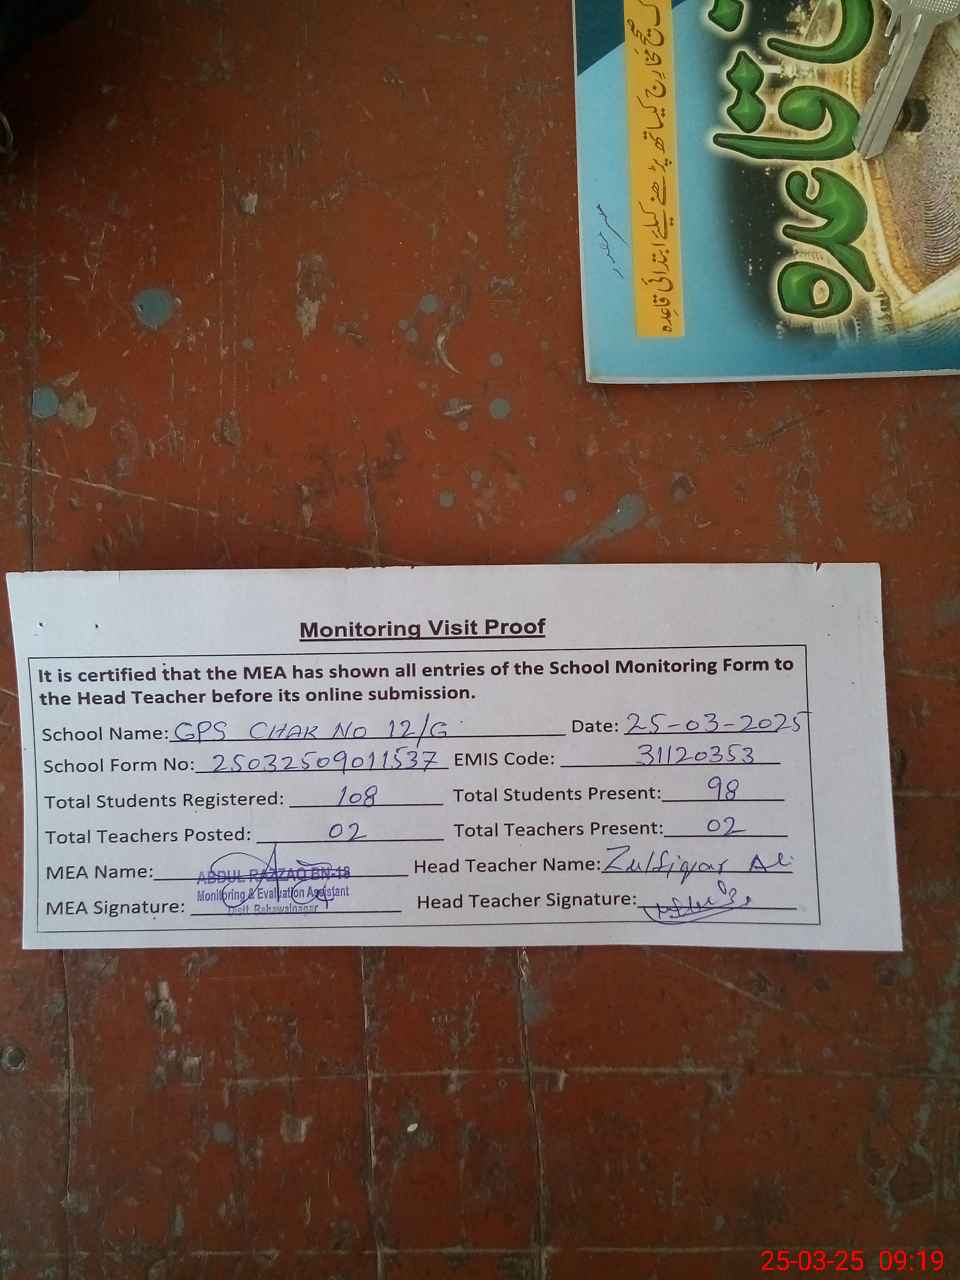 صحیح مخارج کیساتھ پڑھنے کیلئے ابتدائی قاعدہ
قاعدہ
Monitoring Visit Proof
It is certified that the MEA has shown all entries of the School Monitoring Form to
the Head Teacher before its online submission.
School Name: GPS CHAK NO 12/G Date: 25-03-2025
School Form No: 25032509011537 EMIS Code: 31120353
Total Students Registered: 108 Total Students Present: 98
Total Teachers Posted: 02 Total Teachers Present: 02
MEA Name: ABDUL RAZZAQ BN-18 Head Teacher Name: Zulfiqar Ali
Monitoring & Evaluation Assistant
MEA Signature: Distt Bahawalnagar Head Teacher Signature:
25-03-25 09:19